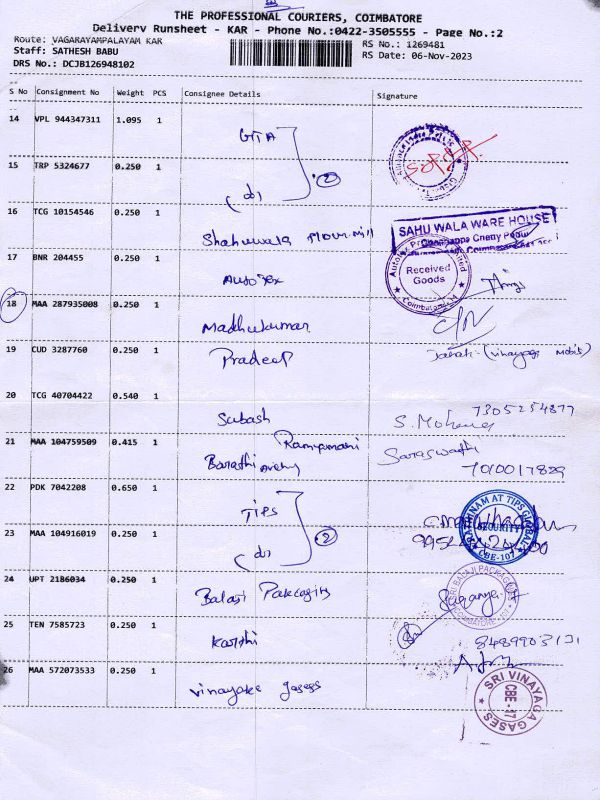 THE PROFESSIONAL COURIERS, COIMBATORE
Delivery Runsheet - KAR - Phone No.:0422-3505555 - Page No.:2
Route: VAGARAYAMPALAYAM KAR
RS No.: 1269481
Staff: SATHESH BABU
RS Date: 06-Nov-2023
DRS No.: DCJB126948102
S No Consignment No Weight PCS Consignee Details Signature
14 VPL 944347311 1.095 1
GTA
15 TRP 5324677 0.250 1
(do) 2
16 TCG 10154546 0.250 1
SAHU WALA WARE HOUSE
Shahuwala Flour Mill
17 BNR 204455 0.250 1
Received Goods
Coimbatore
18 MAA 287935008 0.250 1
Madhukumar
19 CUD 3287760 0.250 1
Pradeep
Janaki (vinayaga mobils)
20 TCG 40704422 0.540 1
Subash
7305254877
S. Mohana
21 MAA 104759509 0.415 1
Ramyamani
Barathi Avenu
Saraswathi
7010017829
22 PDK 7042208 0.650 1
TIPS
RATHINAM AT TIPS GLOBAL
SECURITY
CBE-107
23 MAA 104916019 0.250 1
(do) 2
24 UPT 2186034 0.250 1
Balaji Packaging
SRI BALAJI PACKAGING
COIMBATORE - 107
25 TEN 7585723 0.250 1
Karthi
8489903131
26 MAA 572073533 0.250 1
Vinayaka gases
SRI VINAYAGA GASES